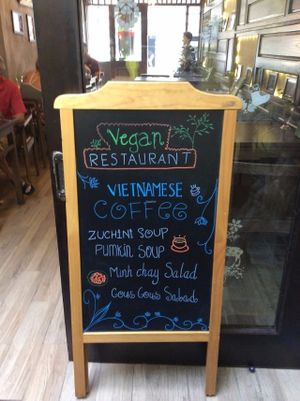 Vegan
RESTAURANT
VIETNAMESE
COFFEE
ZUCHINI SOUP
PUMKIN SOUP
Minh chay Salad
Cous Cous Salad